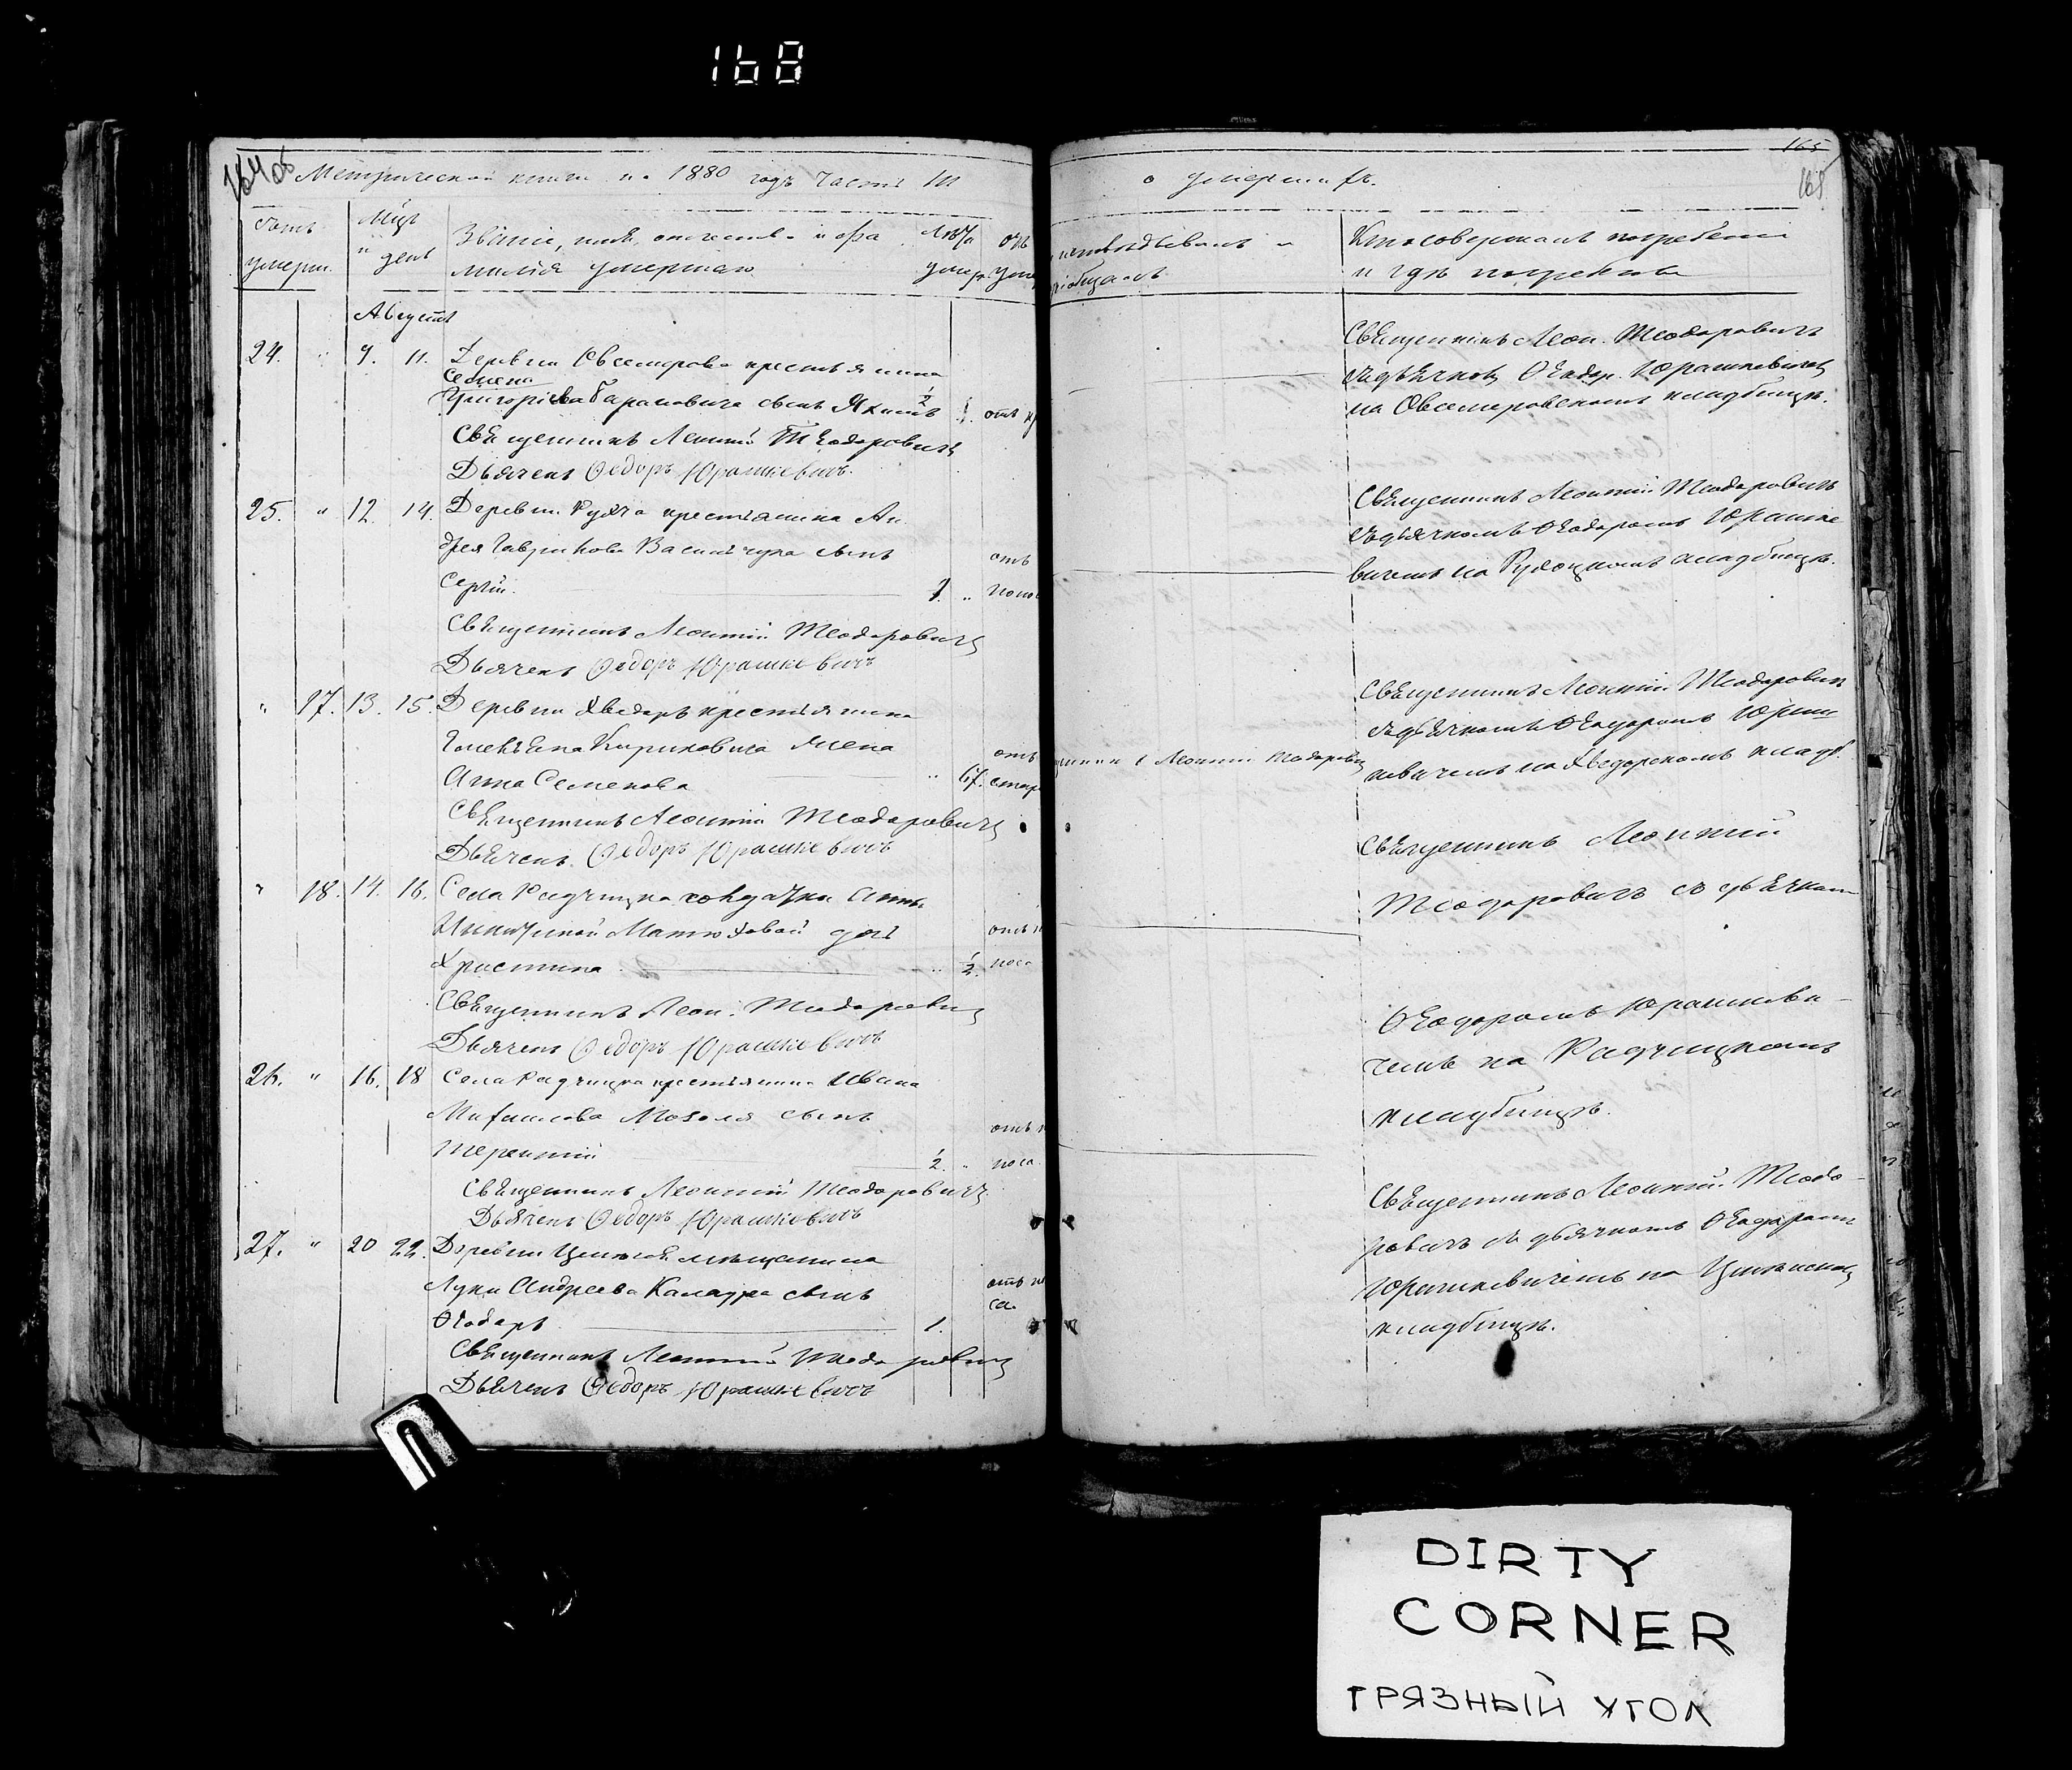 168
164 об
Метрической книги на 1880 годъ Часть III
о умершихъ.
165
165
Счетъ умерш.
Мцъ и день
Званіе, имя, отчество и фамилія умершаго
Лѣта умерш.
Отъ
исповѣдывалъ и
пріобщалъ
Кто совершалъ погребеніе
и гдѣ погребены
Августъ
24. " 9. 11. Деревни Овсемирова крестьянина
Семена
Григоріева Тарасовича сынъ Якимъ 1/2 отъ
Священникъ Леонтій Теодоровичъ
Дьячекъ Ѳедоръ Юрашкевичъ.
Священникъ Леон. Теодоровичъ
съ дьячкомъ Ѳеодор. Юрашкевичемъ
на Овсемировскомъ кладбищѣ.
25. " 12. 14. Деревни Рудча крестьянина Ан
дрея Гаврилова Василчука сынъ отъ
Сергій. 1. " поно
Священникъ Леонтій Теодоровичъ
Дьячекъ Ѳедоръ Юрашкевичъ
Священникъ Леонтій Теодоровичъ
съ дьячкомъ Ѳеодоромъ Юрашке
вичемъ на кладбищѣ.
" 17. 13. 15. Деревни Хведоръ крестьянина
Кириковича жена отъ
Анна Семенова " 67. стар
Священникъ Леонтій Теодоровичъ
Дьячекъ Ѳедоръ Юрашкевичъ
Леонтій Теодоровичъ
Священникъ Леонтій Теодоровичъ
съ дьячкомъ Ѳеодоромъ Юраш
кевичемъ на Хведорскомъ кладб.
" 18. 14. 16. Села Радчицка солдатки Анны
Матюховой дочь отъ
Христина " 1/2. поса
Священникъ Леон. Теодоровичъ
Дьячекъ Ѳедоръ Юрашкевичъ
Священникъ Леонтій
Теодоровичъ съ дьячкомъ
Ѳеодоромъ Юрашкеви-
чемъ на Радчицкомъ
кладбищѣ.
26. " 16. 18 Села Радчицка крестьянина Ивана
Михаилова Мозоля сынъ отъ
Терентій 1/2. " поса
Священникъ Леонтій Теодоровичъ
Дьячекъ Ѳедоръ Юрашкевичъ
27. " 20 22. Деревни мѣщанина
Луки Андреева Калаура сынъ отъ по
са
Ѳеодоръ 1.
Священникъ Леонтій Теодоровичъ
Дьячекъ Ѳедоръ Юрашкевичъ
Священникъ Леонтій Теодо-
ровичъ съ дьячкомъ Ѳеодоромъ
Юрашкевичемъ на
кладбищѣ.
DIRTY
CORNER
ГРЯЗНЫЙ УГОЛ